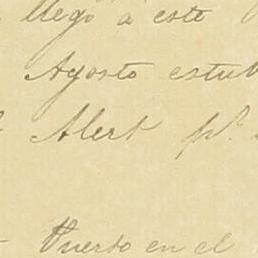 llegó à este
Agosto estub
Alert p.ª
Puerto en el